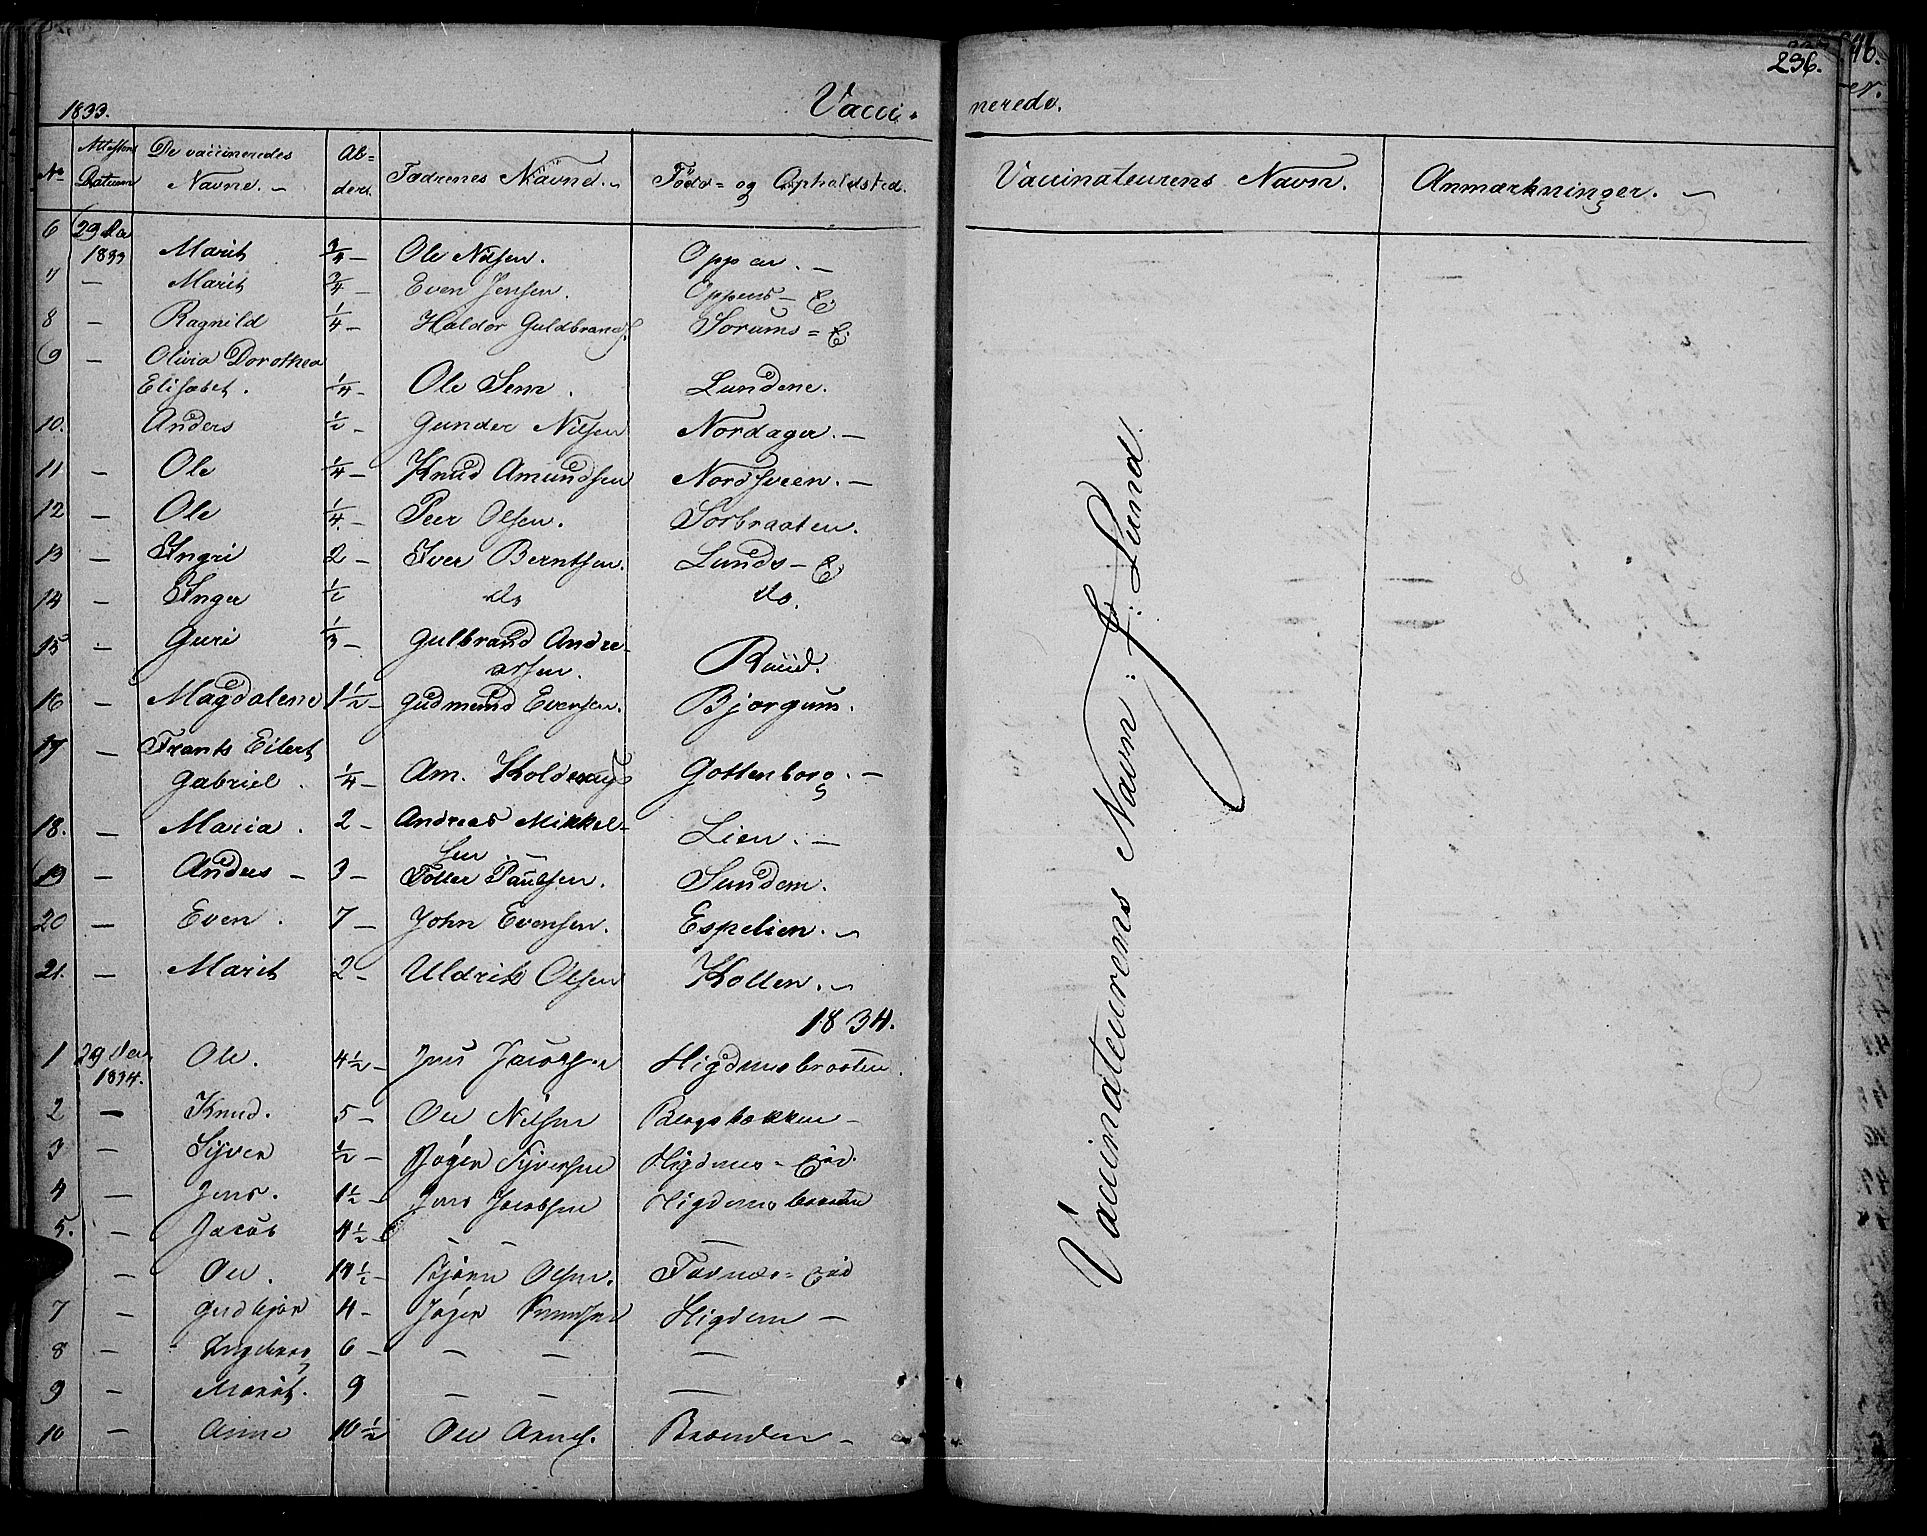 236.
1833. Vacci-nerede.
No Attestens Datum De vaccineredes Navne. Alderd. Fædrenes Navne. Føde- og Opholdsted. Vaccinateurens Navn. Anmærkninger.
6 29 1833 Marit 3/4 Ole Nilsen. Oppen.
7 - Marit 3/4 - Even Jensen. Oppens - E
8 - Ragnild 1/4 - Haldor Guldbrands. Sorums = E
9 - Olivia Dorothea
Elisabet. 1/4 - Ole Sem. Lundene.
10. Anders 1/2 - Gunder Nilsen Nordager. -
11 - Ole 1/4 - Knud Amundsen Nordsveen. -
12 - Ole 1/4 - Peer Olsen. Sorbraaten.
13 - Ingri 2 - Iver Berntsen. Lunds - E
14 - Inger 1/2 do do.
15 - Guri 1/3 - Gulbrand Andre-
arsen. Ruud.
16 - Magdalene 1 1/2 - Gudmund Evensen. Bjorgum.
17 - Frants Eilert
Gabriel. 1/4 - Am. Gottenborg. -
18. - Maria. 2 - Andreas Mikkel-
sen. Lien. -
19 - Anders - 3 - Toller Paulsen. Sundem.
20 - Even. 7 - John Evensen. Espelien.
21. - Marit 2 - Uldrik Olsen Kollen.
1834.
1 29 1834. Ole. 4 1/2 - Jens Jacobsen Higdensbraaten.
2 - Knud. 5 - Ole Nilsen Bergsbakken -
3 - Syver 1/2 - Syversen Higdens -
4 - Jens. 1 1/2 - Jens Jacobsen Higdensbraaten
5. - Jacob 4 1/2 - - -
- Ole. 11 1/2 - Bjørn Olsen.
7 - Gudbjør 4 - Higden -
8 - Ingeborg 6 - - - -
9 - Marit. 9 - - -
10 - Anne 10 1/2 Ole Arnes. Brænden -
Vaccinateurens Navn: J: Lund.